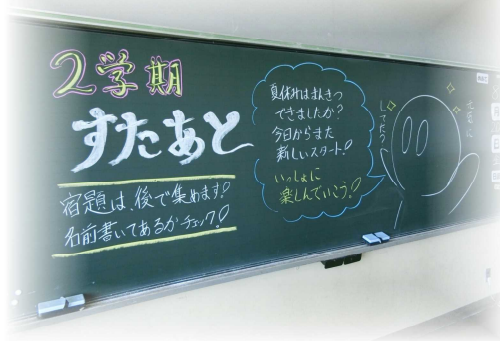 2学期
すたあと
宿題は、後で集めます!
名前書いてあるかチェック!
夏休みはまんきつ
できましたか?
今日からまた
新しいスタート!
いっしょに
楽しんでいこう!